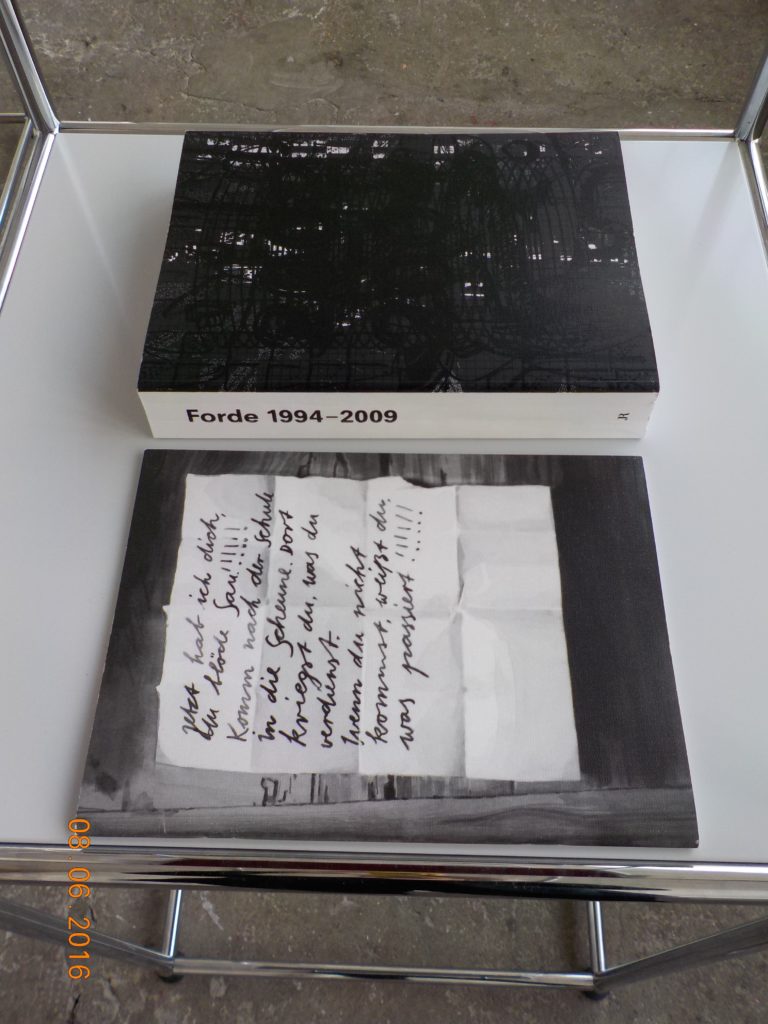 Forde 1994–2009
JR
Jetzt hab ich dich,
du blöde Sau!!!!!!
Komm nach der Schule
in die Scheune. Dort
kriegst du, was du
verdienst.
Wenn du nicht
kommst, weißt du,
was passiert!!!!!!
08.06 2016